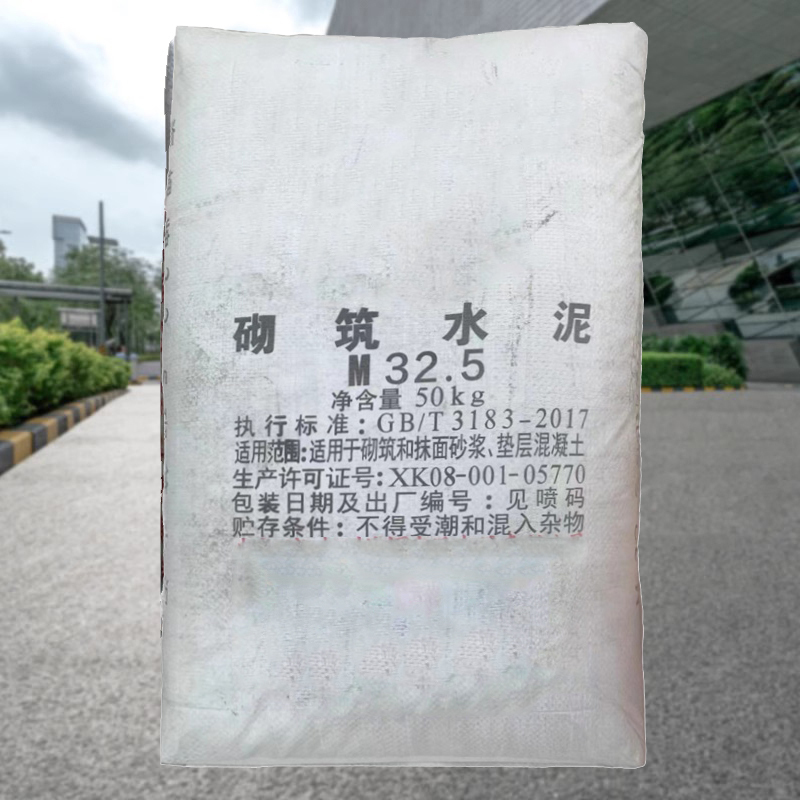 砌筑水泥
M 32.5
净含量 50kg
执行标准：GB/T 3183-2017
适用范围：适用于砌筑和抹面砂浆、垫层混凝土
生产许可证号：XK08-001-05770
包装日期及出厂编号：见喷码
贮存条件：不得受潮和混入杂物